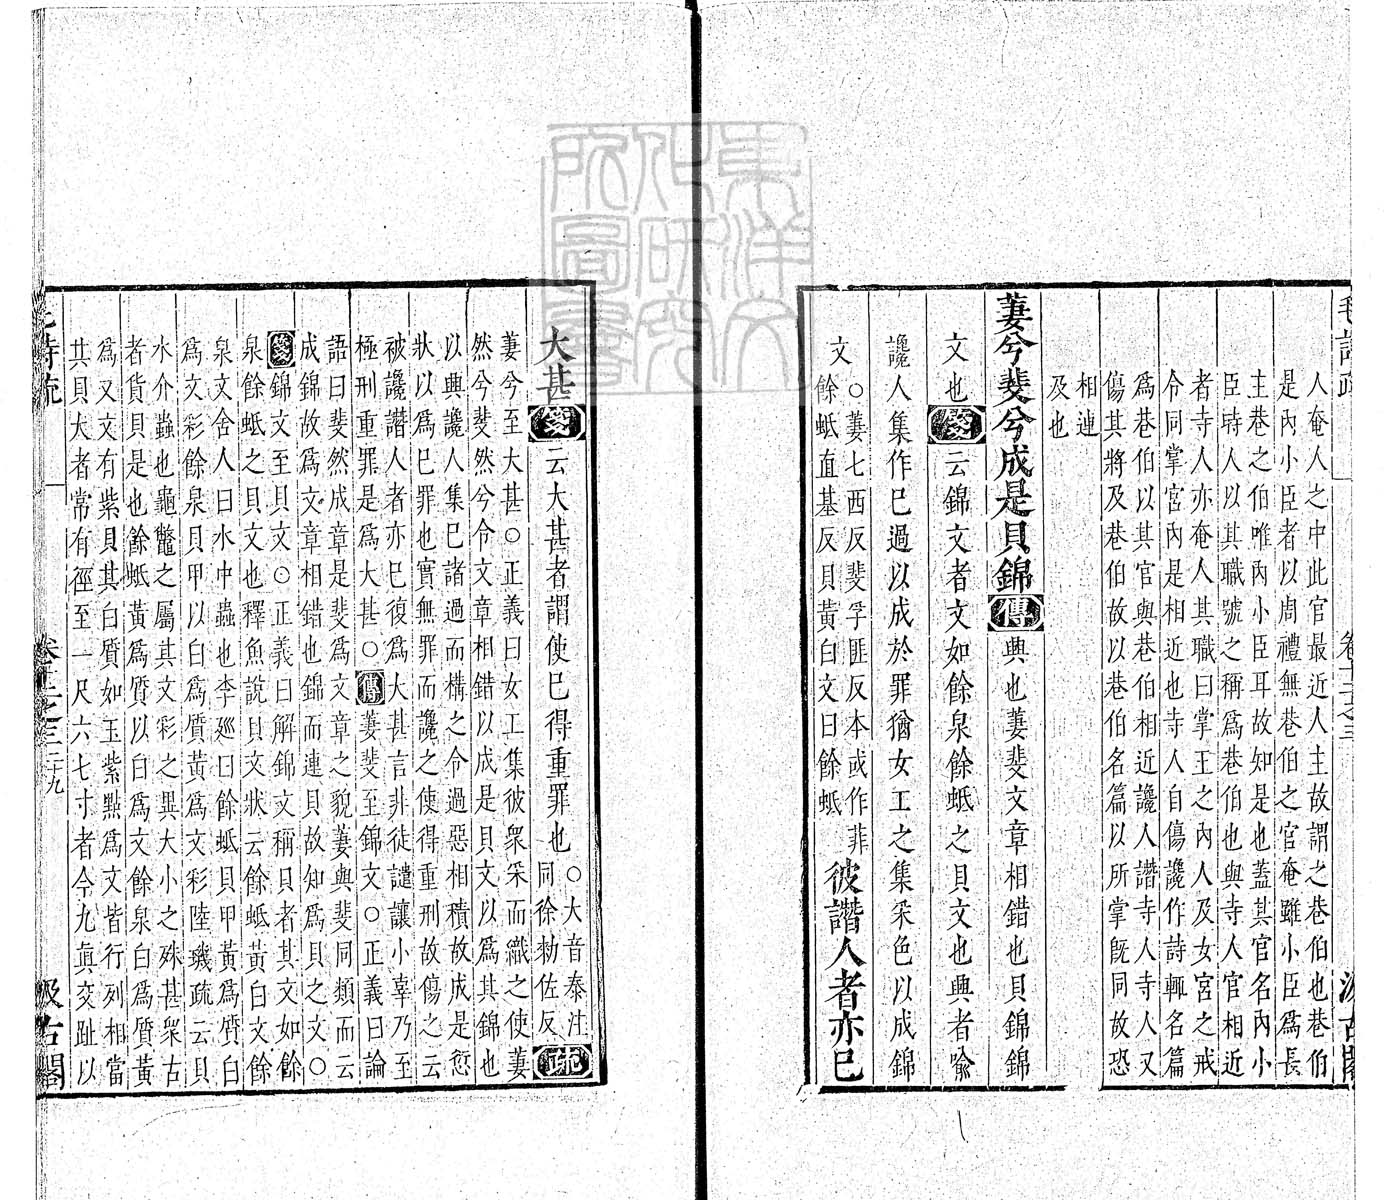 人奄人之中此官最近人主故謂之巷伯也巷伯
是內小臣者以周禮無巷伯之官奄雖小臣爲長
主巷之伯唯內小臣耳故知是也蓋其官名內小
臣時人以其職號之稱爲巷伯也與寺人官相近
者寺人亦奄人其職曰掌王之內人及女宮之戒
令同掌宮內是相近也寺人自傷讒作詩輒名篇
爲巷伯以其官與巷伯相近讒人譖寺人寺人又
傷其將及巷伯故以巷伯名篇以所掌既同故恐
相連
及也
萋兮斐兮成是貝錦傳興也萋斐文章相錯也貝錦錦
文也箋云錦文者文如餘泉餘蚳之貝文也興者喻
讒人集作巳過以成於罪猶女工之集采色以成錦
文○萋七西反斐孚匪反本或作菲
餘蚳直基反貝黃白文曰餘蚳彼譖人者亦巳
大甚箋云大甚者謂使巳得重罪也○大音泰注
同徐勑佐反疏
萋兮至大甚○正義曰女工集彼衆采而織之使萋
然兮斐然兮令文章相錯以成是貝文以爲其錦也
以興讒人集巳諸過而構之令過惡相積故成是愆
狀以爲巳罪也實無罪而讒之使得重刑故傷之云
被讒譖人者亦巳復爲大甚言非徒譴讓小辜乃至
極刑重罪是爲大甚○傳萋斐至錦文○正義曰論
語曰斐然成章是斐爲文章之貌萋與斐同類而云
成錦故爲文章相錯也錦而連貝故知爲貝之文○
箋錦文至貝文○正義曰解錦文稱貝者其文如餘
泉餘蚳之貝文也釋魚說貝文狀云餘蚳黃白文餘
泉文舍人曰水中蟲也李廵曰餘蚳貝甲黃爲質白
爲文彩餘泉貝甲以白爲質黃爲文彩陸璣疏云貝
水介蟲也龜鼈之屬其文彩之異大小之殊甚衆古
者貨貝是也餘蚳黃爲質以白爲文餘泉白爲質黃
爲文又有紫貝其白質如玉紫點爲文皆行列相當
其貝大者常有徑至一尺六七寸者今九眞交趾以
卷十二之三 二十九
汲古閣